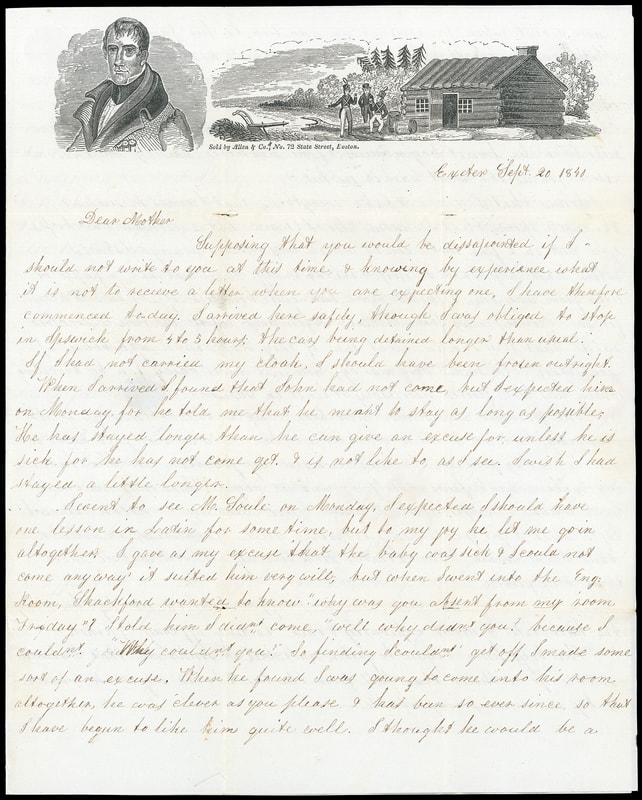 Sold by Allen & Co., No. 72 State Street, Boston.
Exeter Sept. 20 1841
Dear Mother
Supposing that you would be dissapointed if I
should not write to you at this time, & knowing by experience what
it is not to recieve a letter when you are expecting one, I have therefore
commenced to-day. I arrived here safely, though I was obliged to stop
in Ipswich from 4 to 5 hours; the cars being detained longer than usual.
If I had not carried my cloak, I should have been frozen outright.
When I arrived I found that John had not come, but I expected him
on Monday, for he told me that he meant to stay as long as possible;
He has stayed longer than he can give an excuse for, unless he is
sick, for he has not come yet. & is not like to, as I see. I wish I had
stayed a little longer.
I went to see Mr. Soule on Monday, I expected I should have
one lesson in Latin for some time, but to my joy he let me go in
altogether. I gave as my excuse that the baby was sick & I could not
come anyway it suited him very well; but when I went into the Eng.
Room, Shackford wanted to know "why was you absent from my room
Friday"? I told him I didn't come, "well why didn't you? because I
couldn't. "Why couldn't you? So finding I couldn't get off I made some
sort of an excuse. When he found I was going to come into his room
altogether, he was clever as you please & has been so ever since, so that
I have begun to like him quite well. I thought he would be a